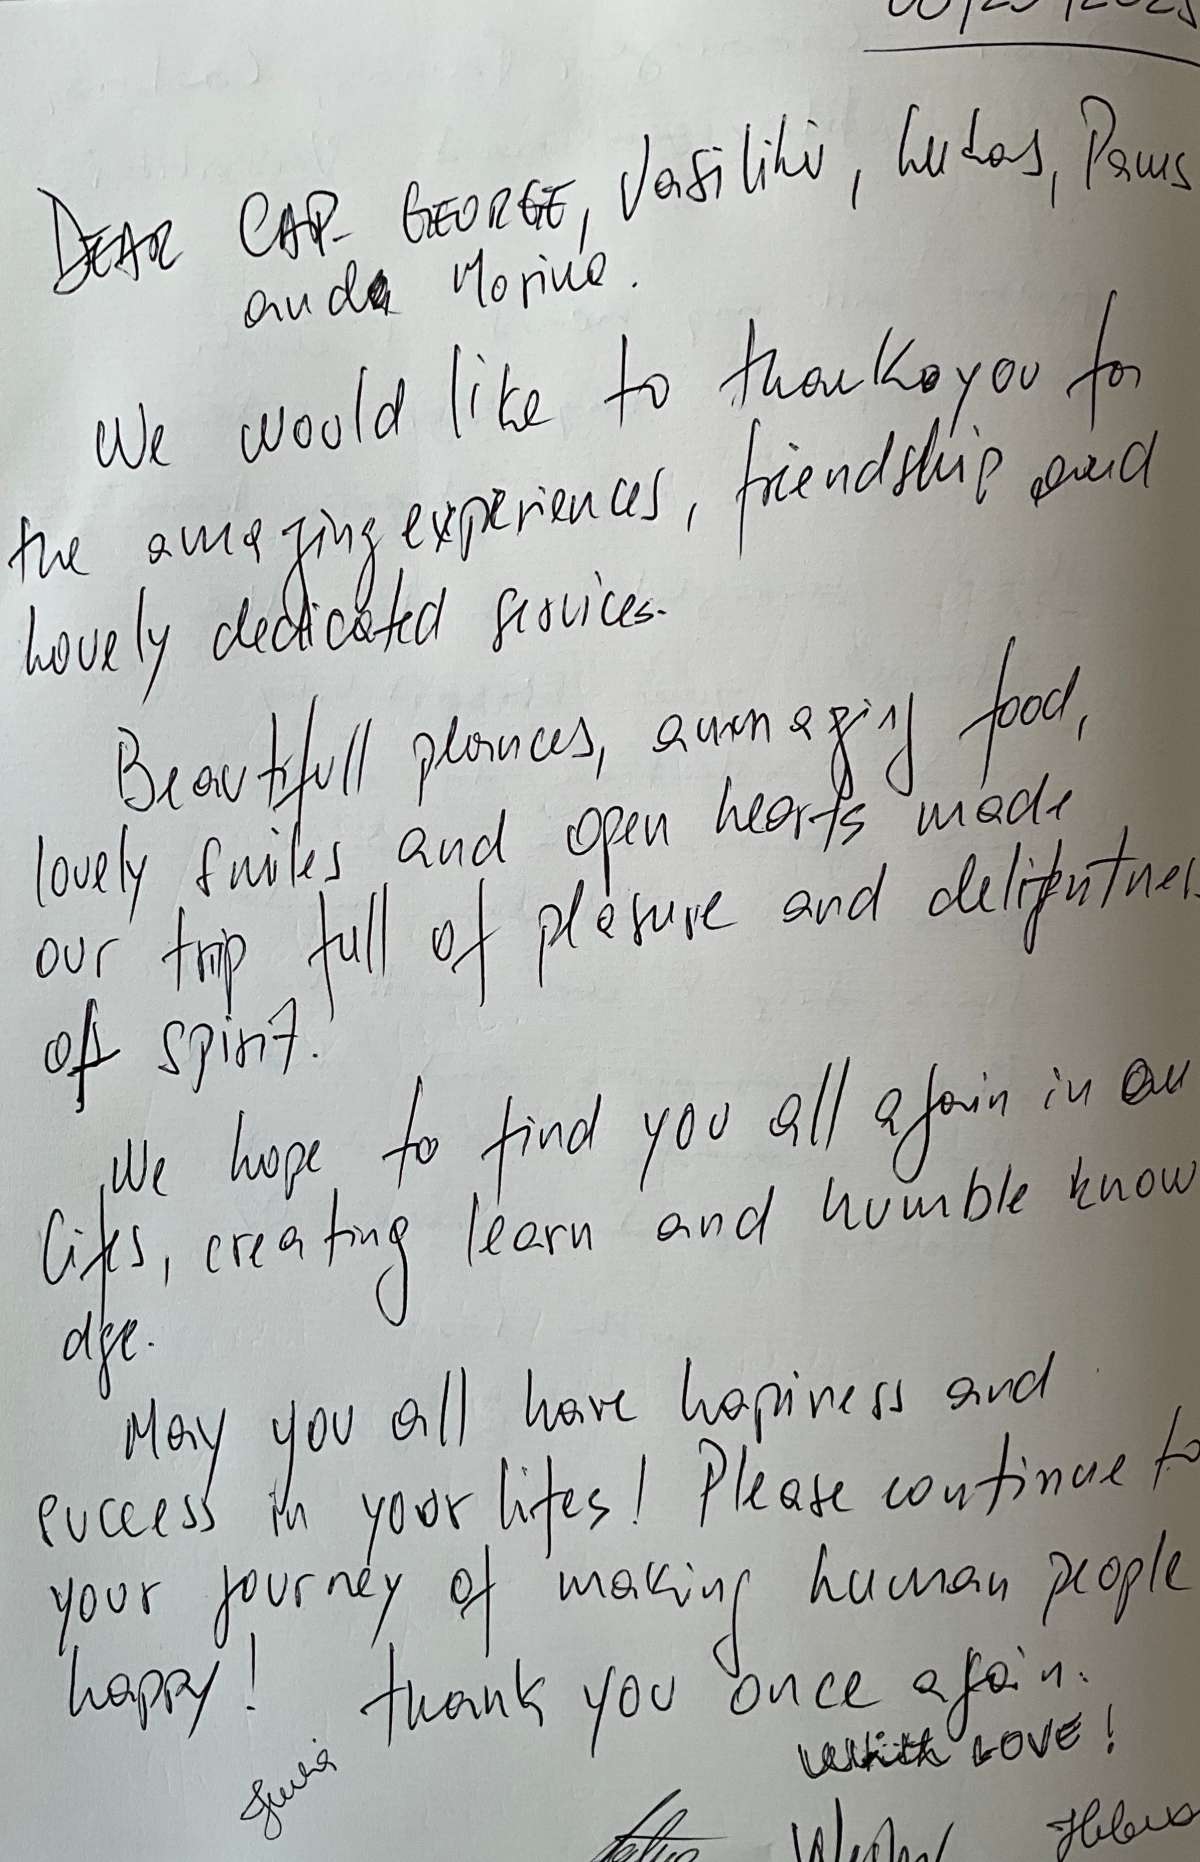 DEAR CAP. GEORGE, Vasiliki, Lukas,
and Marina.
We would like to thank you for
the amazing experiences, friendship and
lovely dedicated services.
Beautifull places, amazing food,
lovely smiles and open hearts made
our trip full of plasure and
of spirit.
We hope to find you all again in
lifes, creating learn and humble know
dge.
May you all have hapiness and
success in your lifes! Please continue to
your journey of making human people
happy! Thank you once again.
With LOVE!